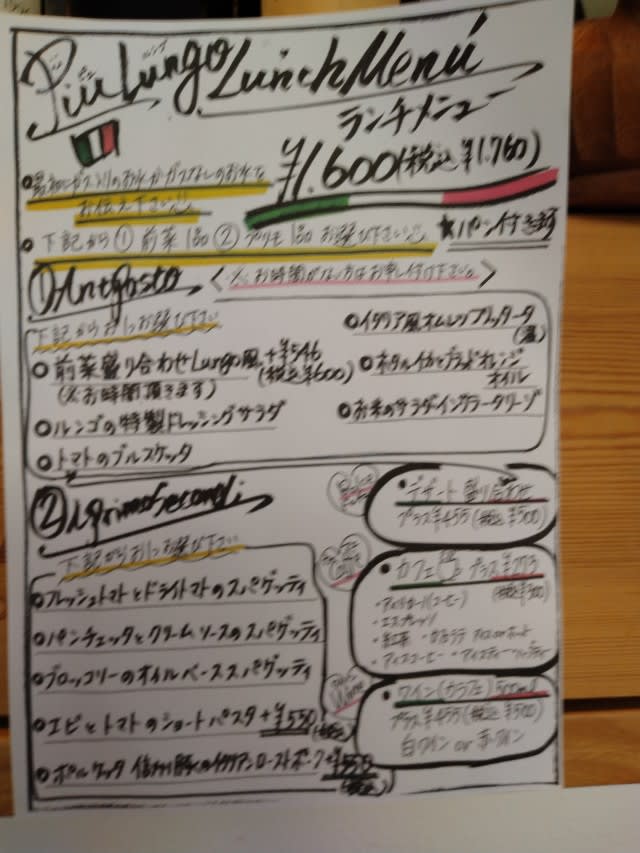 Più Lungo Lunch Menú
ランチメニュー
¥1.600(税込¥1.760)
●最初にガス入りのお水かガスなしのお水を
お伝え下さい
●下記から①前菜1品②プリモ1品お選び下さい
★パン付き
①Antipasto
〈※お時間がない方はお申し付け下さい。〉
下記からお1つお選び下さい
●前菜盛り合わせLungo風 +¥546
(税込¥600)
(※お時間頂きます)
●ルンゴの特製ドレッシングサラダ
●トマトのブルスケッタ
●イタリア風オムレツフリッタータ
(温)
●ホタルイカとブラッドオレンジ
オイル
●お米のサラダインサラータリーゾ
②
下記からお1つお選び下さい
●フレッシュトマトとドライトマトのスパゲッティ
●パンチェッタとクリームソースのスパゲッティ
●ブロッコリーのオイルベーススパゲッティ
●エビとトマトのショートパスタ +¥550
(税込)
●ポルケッタ イタリアンローストポーク +¥550
(税込)
●デザート盛り合わせ
プラス¥455(税込¥500)
●カフェ プラス¥273
(税込¥300)
・エスプレッソ
・紅茶
・アイスコーヒー ・アイスティー
●ワイン(カラフェ)500ml
プラス¥455(税込¥500)
白ワイン or 赤ワイン